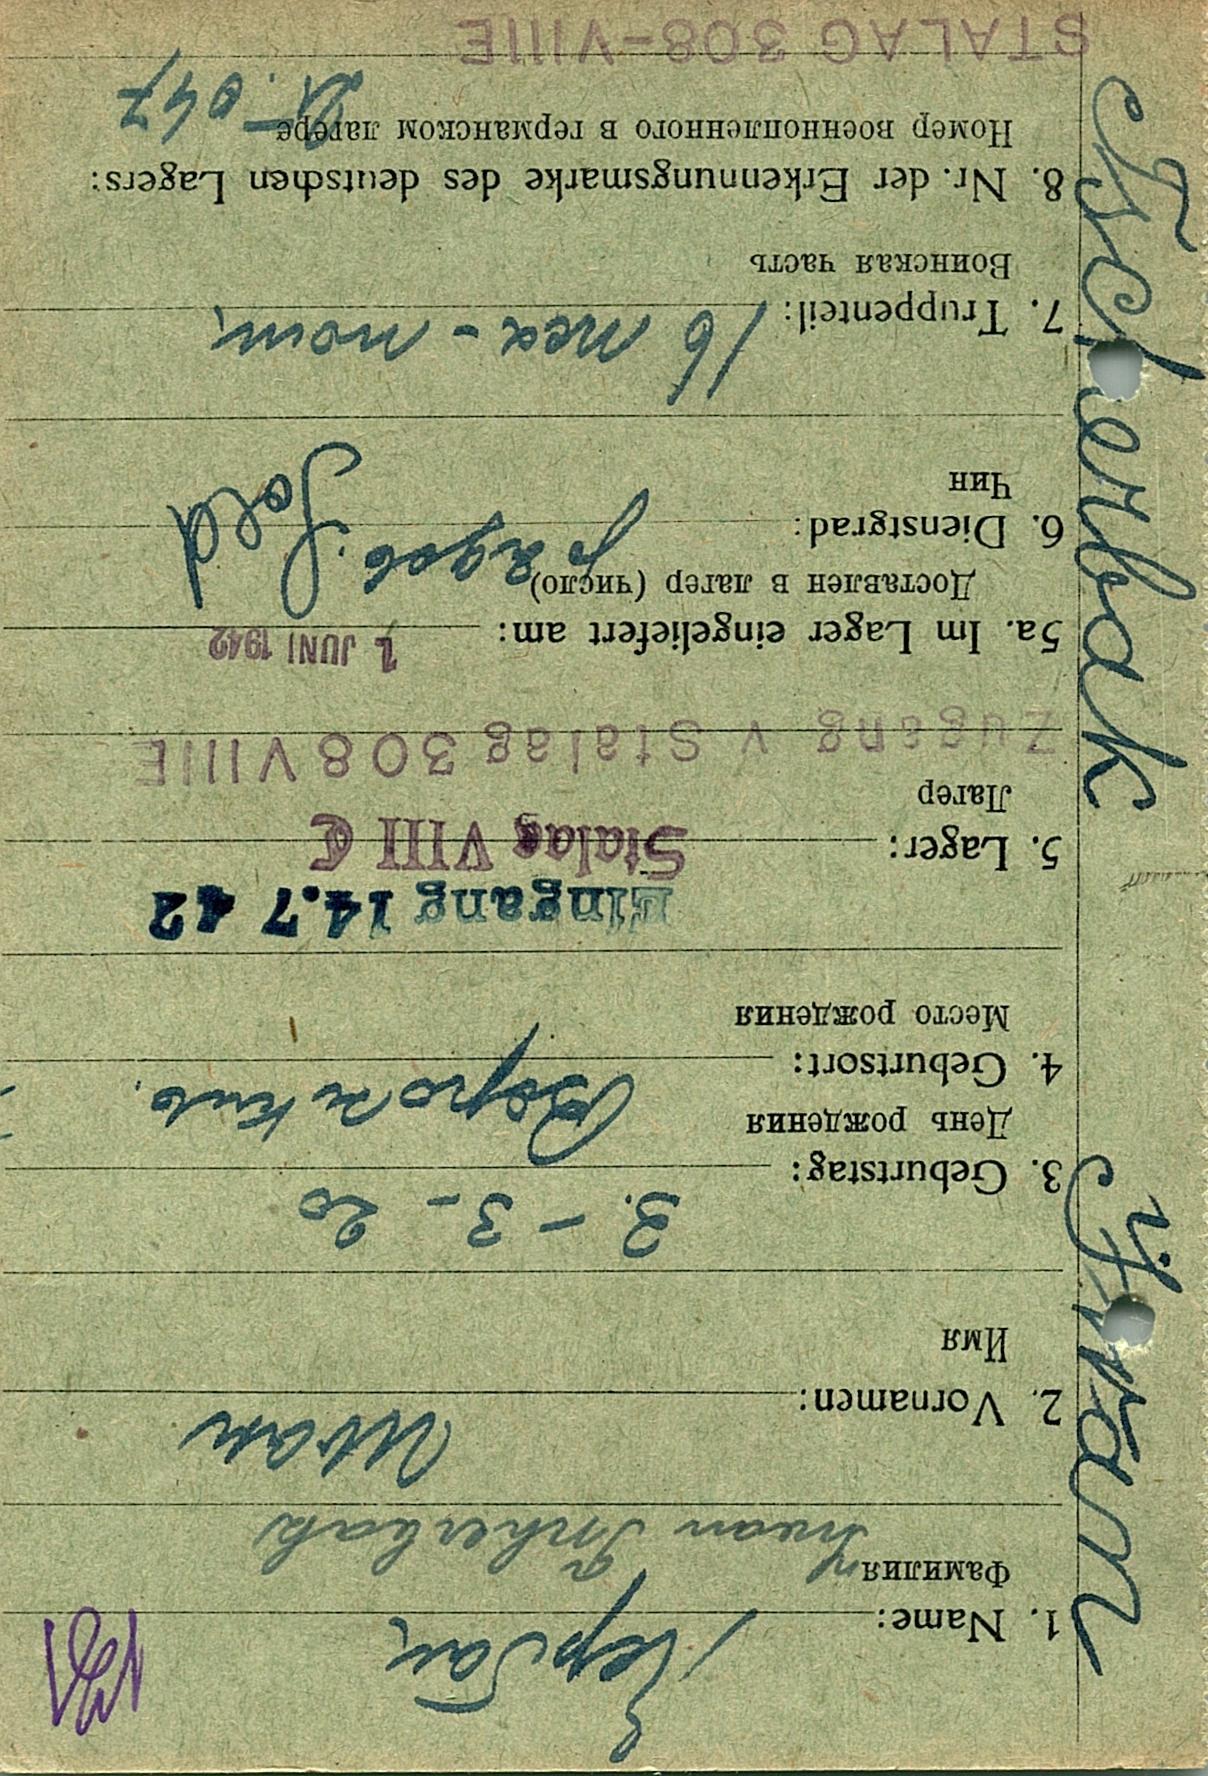 Tscherbak Iwan
1. Name: Чербак
Фамилия
Iwan Tscherbak
2. Vornamen: Иван
Имя
3. Geburtstag: 3. – 3 – 20
День рождения
4. Geburtsort:
Место рождения
Eingang 14.7 42
5. Lager: Stalag VIII C
Лагер
Zugang v Stalag 308 VIIIE
5a. Im Lager eingeliefert am: 1. JUNI 1942
Доставлен в лагер (число)
6. Dienstgrad: рядов. Sold
Чин
7. Truppenteil: 16
Воинская часть
8. Nr. der Erkennungsmarke des deutschen Lagers:
Номер военнопленного в германском лагере 21.047
STALAG 308-VIIIE